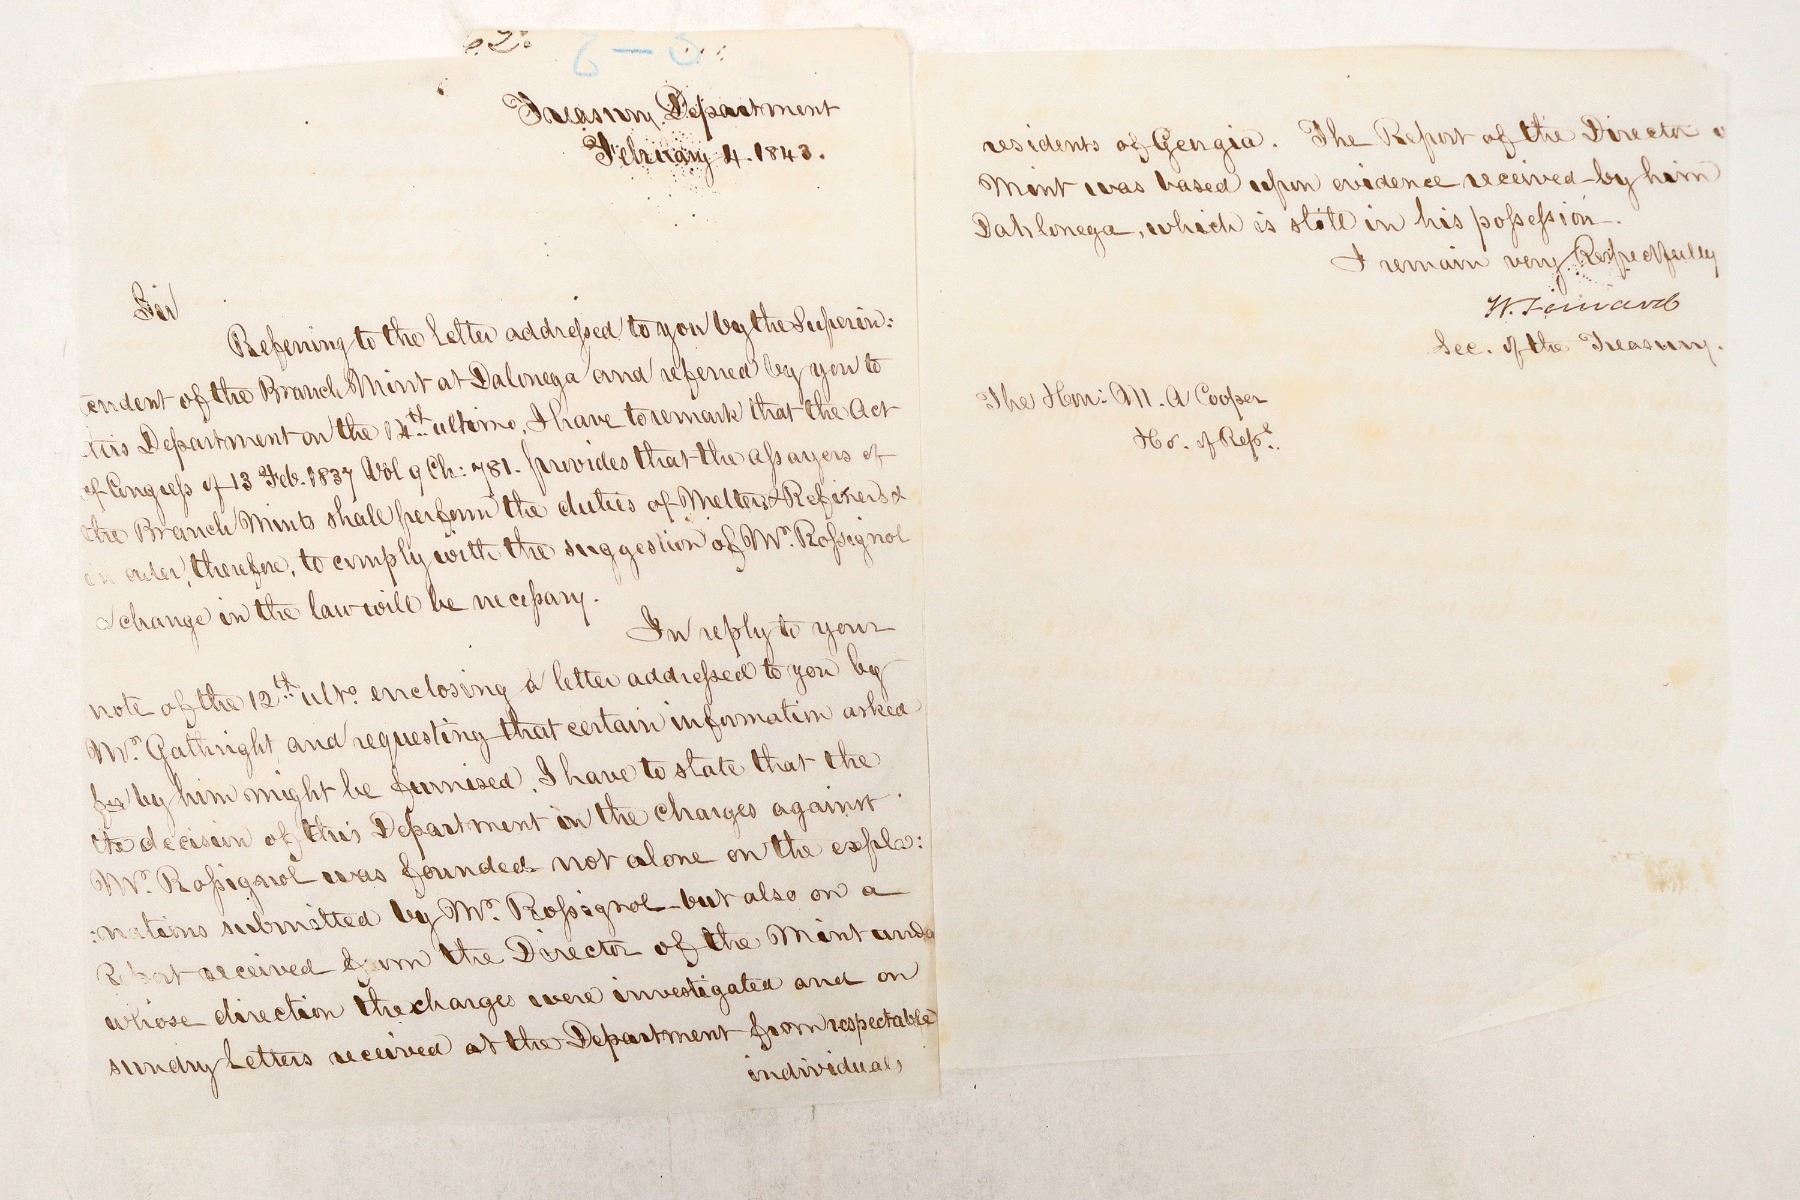 62.
Treasury Department
February 4. 1843.
Sir
Referring to the letter addressed to you by the Superin:
tendent of the Branch Mint at Dalonega and referred by you to
this Department on the 14th ultimo, I have to remark that the Act
of Congress of 13 Feb. 1837 Vol 9 Ch: 781. provides that the assayers of
the Branch Mints shall perform the duties of Melters & Refiners &
in order, therefore, to comply with the suggestion of Mr. Rossignol
a change in the law will be necessary.
In reply to your
note of the 12th ulto. enclosing a letter addressed to you by
Mr. Gathright and requesting that certain information asked
for by him might be furnised, I have to state that the
the decision of this Department in the charges against
Mr. Rossignol was founded not alone on the expla:
:nations submitted by Mr. Rossignol but also on a
Report received from the Director of the Mint under
whose direction the charges were investigated and on
sundry letters received at the Department from respectable
individuals
residents of Georgia. The Report of the Director
Mint was based upon evidence received by him
Dahlonega, which is still in his possession.
I remain very Respectfully
W. Forward
Sec. of the Treasury.
The Hon: M. A Cooper
Ho. of Reps.